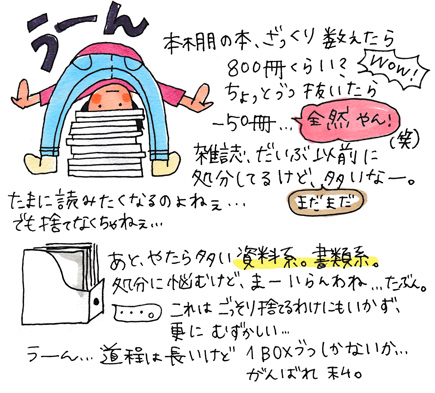 うーん
本棚の本、ざっくり数えたら
800冊くらい？
WOW!
ちょっとづつ抜いたら
-50冊...
全然やん!
(笑)
雑誌、だいぶ以前に
処分してるけど、多いなー。
まだまだ
たまに読みたくなるのよねぇ...
でも捨てなくちゃねぇ...
あと、やたら多い資料系。書類系。
処分に悩むけど、まーいらんわね...たぶん。
...。
これはごっそり捨てるわけにもいかず、
更にむずかしい...
うーん... 道程は長いけど 1BOXづつしかないか...
がんばれ 私。